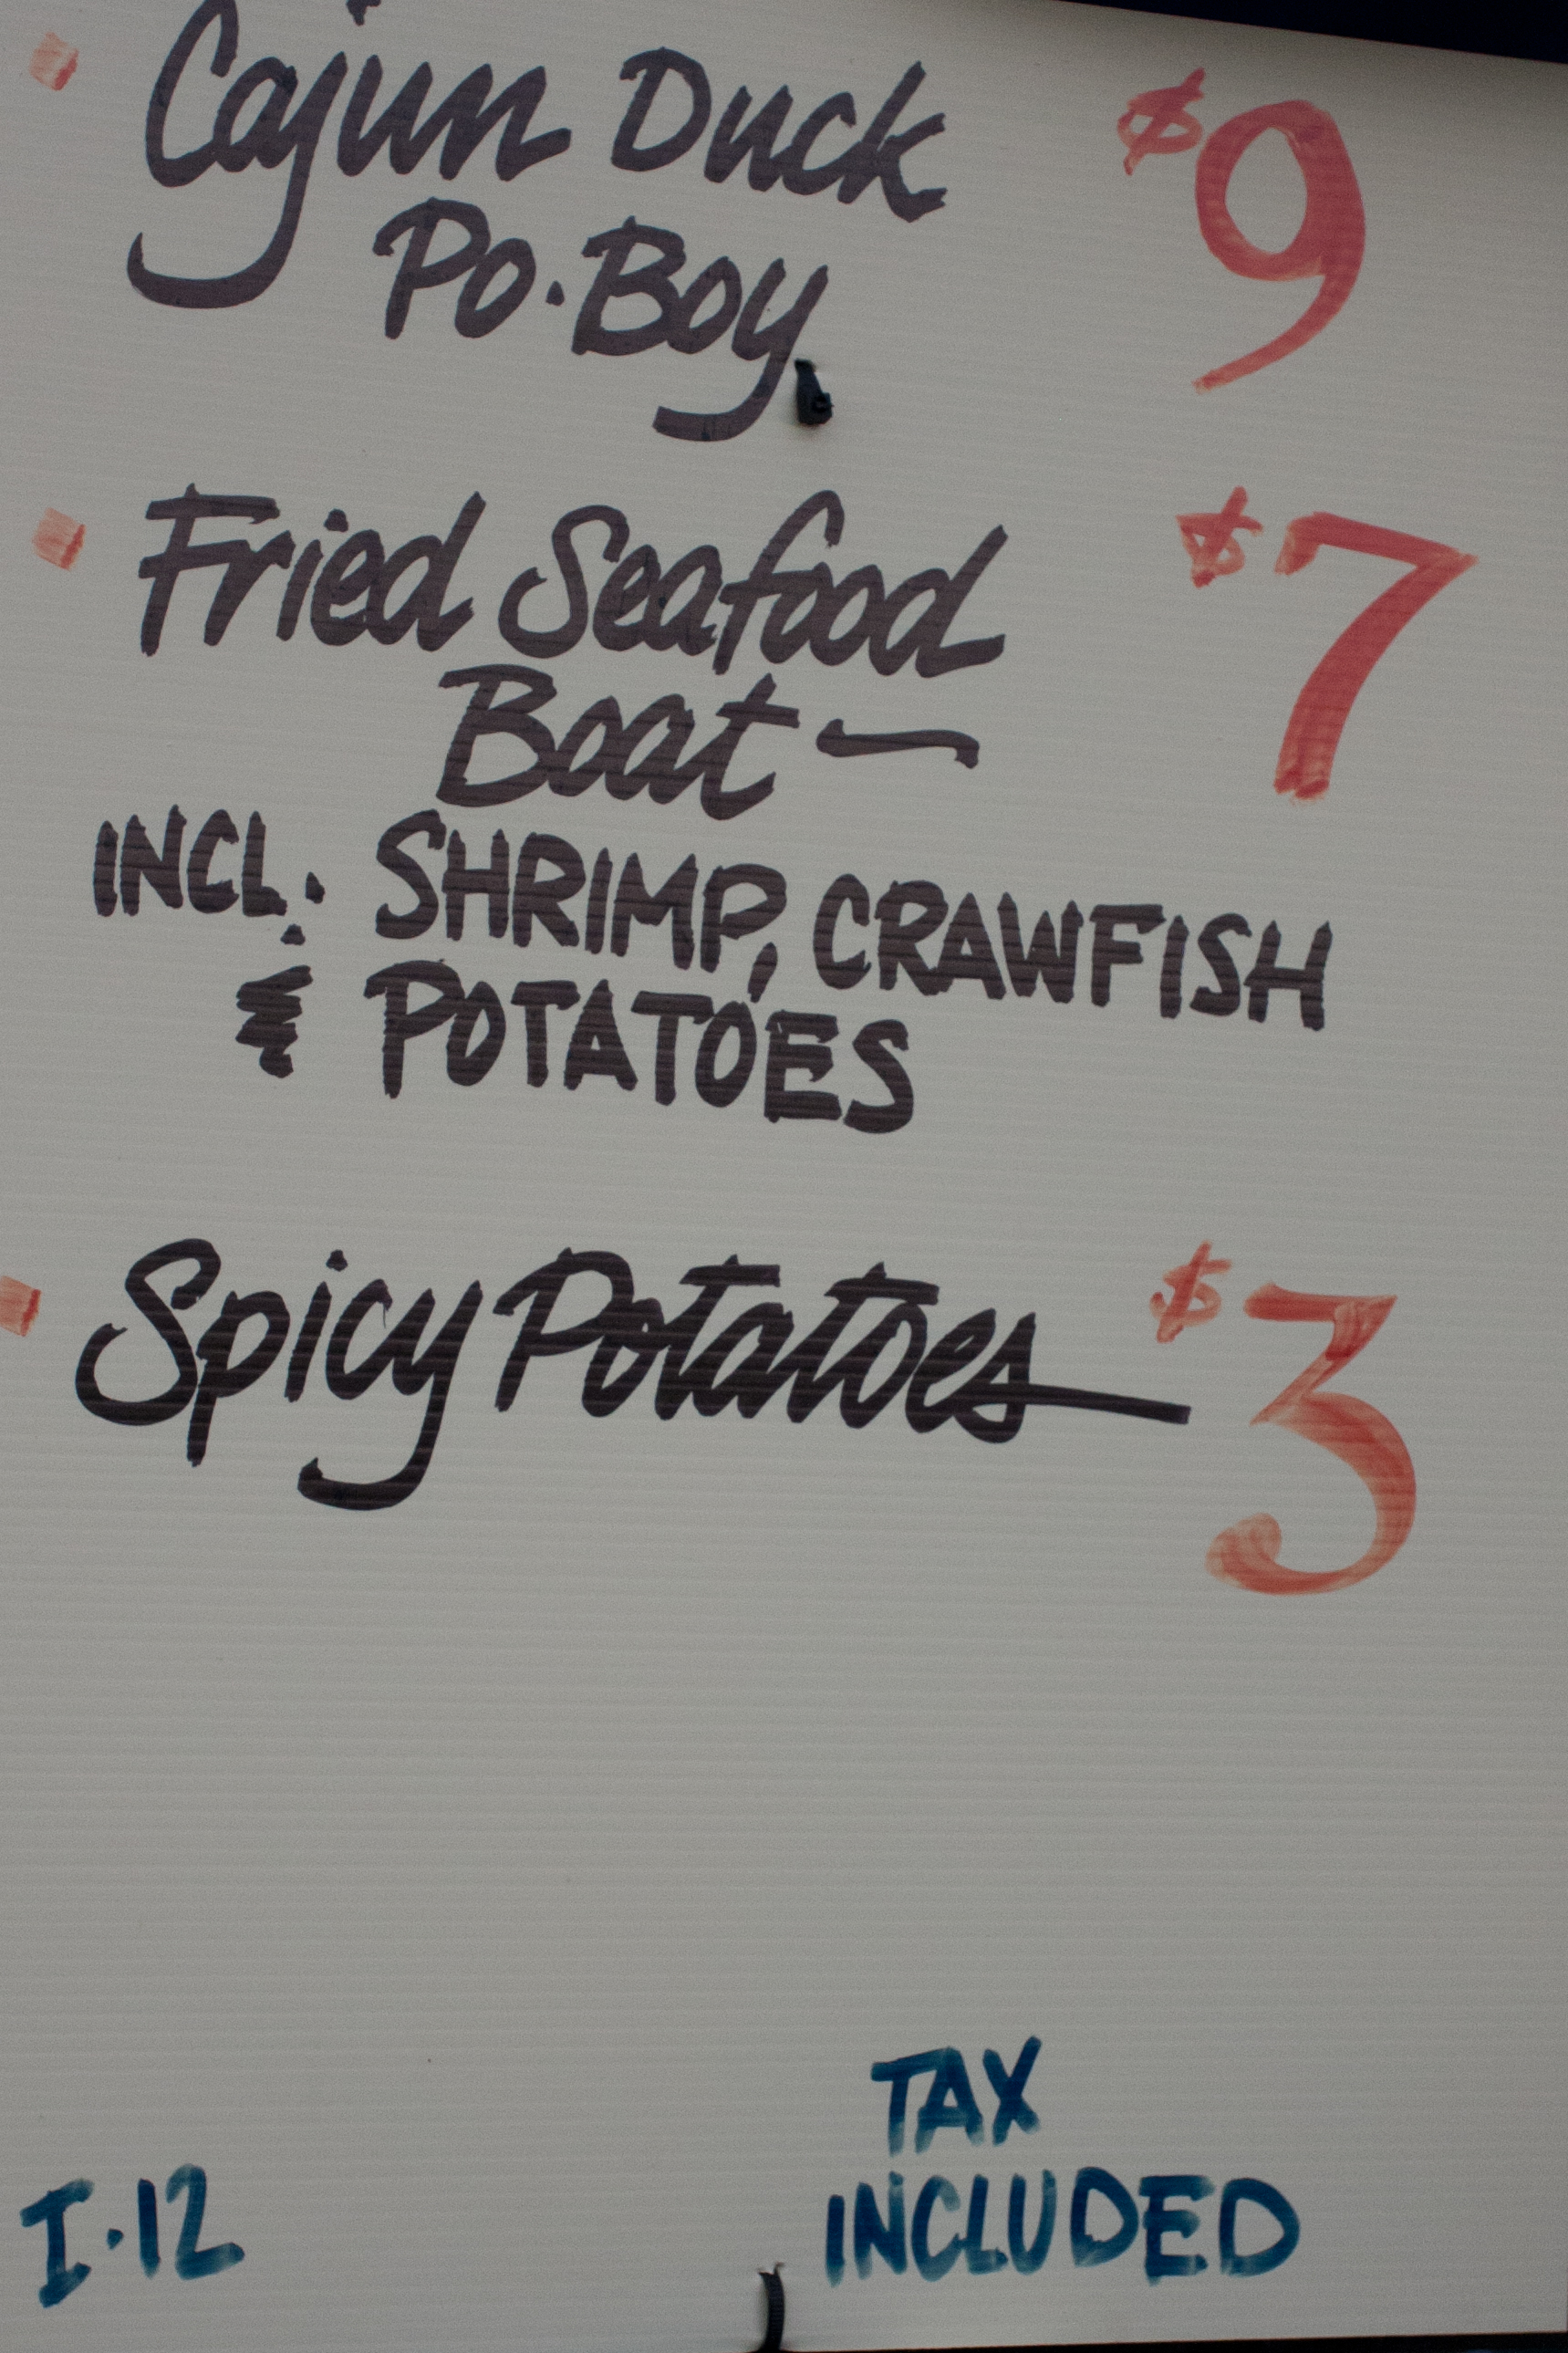 Cajun Duck $9
Po·Boy
Fried Seafood $7
Boat —
INCL: SHRIMP, CRAWFISH
& POTATOES
Spicy Potatoes $3
TAX
I·12 INCLUDED